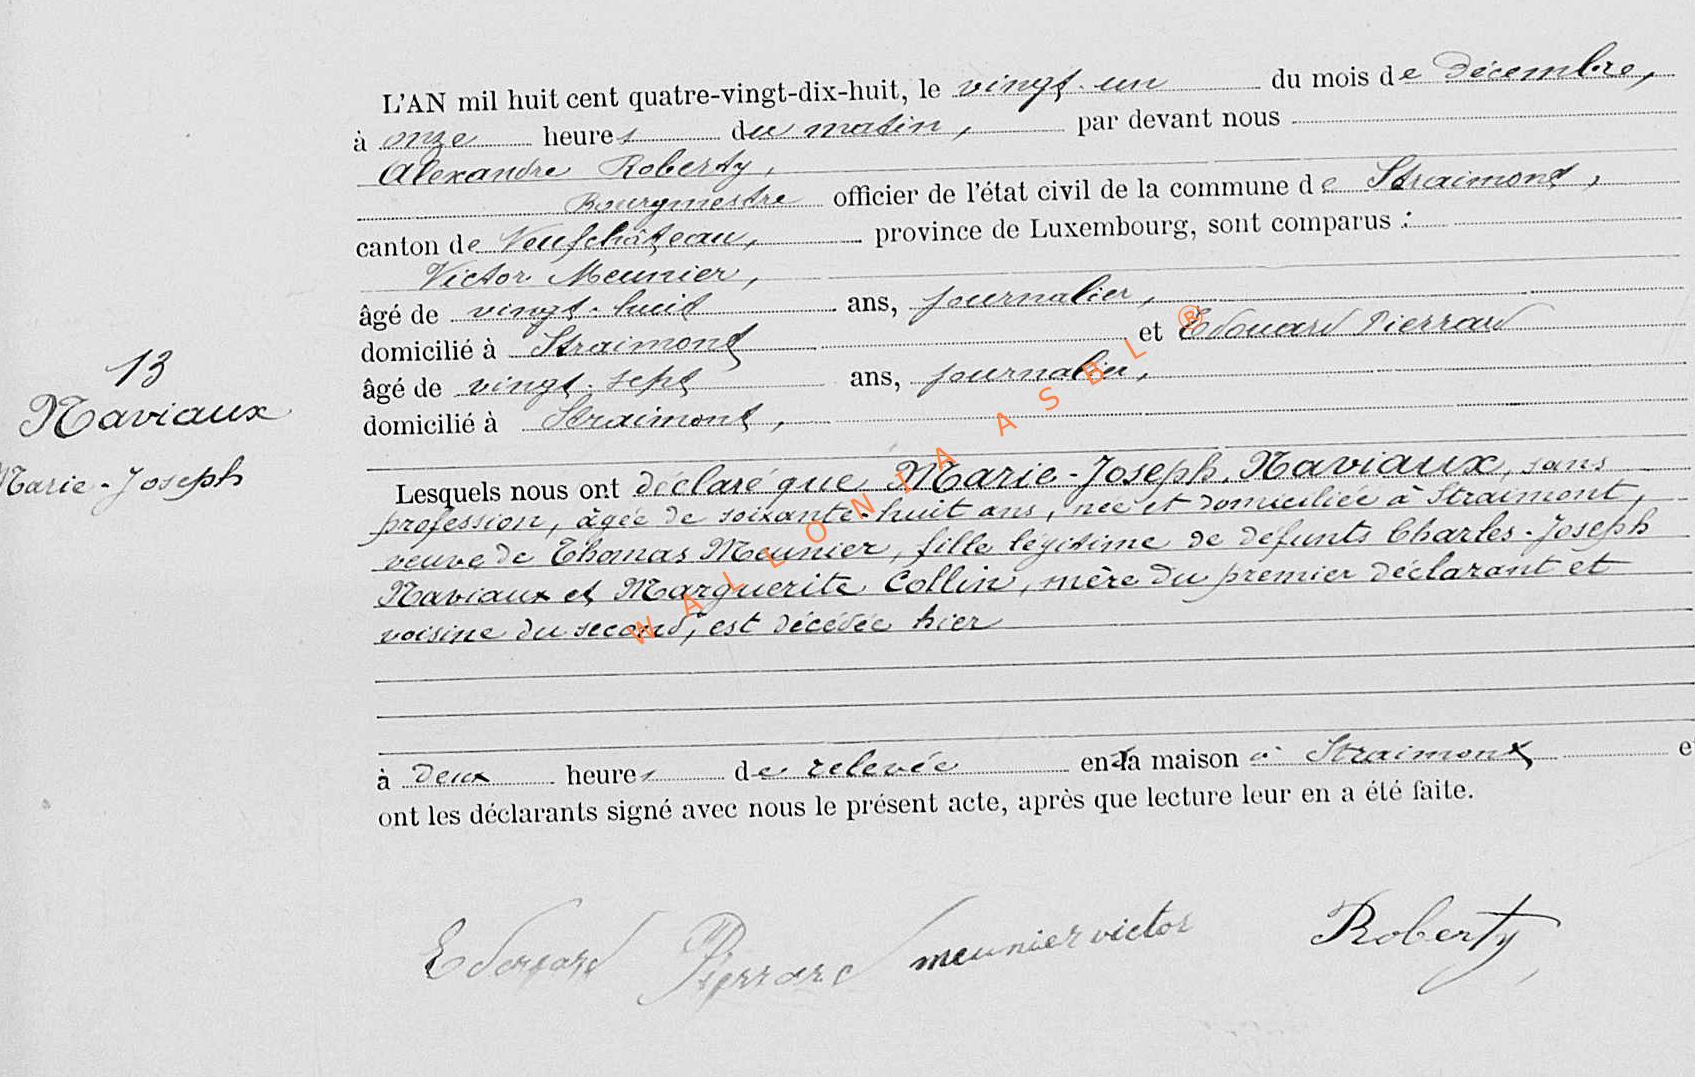 L'AN mil huit cent quatre-vingt-dix-huit, le vingt-un du mois de Décembre,
à onze heures du matin, par devant nous
Alexandre Roberty,
Bourgmestre officier de l'état civil de la commune de Straimont,
canton de Neufchâteau, province de Luxembourg, sont comparus :
Victor Meunier,
âgé de vingt-huit ans, journalier,
domicilié à Straimont et Edouard Pierrard
âgé de vingt-sept ans, journalier,
domicilié à Straimont,
13
Naviaux
Marie-Joseph
Lesquels nous ont déclaré que Marie-Joseph Naviaux, sans
profession, âgée de soixante-huit ans, née et domiciliée à Straimont,
veuve de Thomas Meunier, fille légitime de défunts Charles-Joseph
Naviaux et Marguerite Collin, mère du premier déclarant et
voisine du second, est décédée hier
à deux heures de relevée en la maison à Straimont et
ont les déclarants signé avec nous le présent acte, après que lecture leur en a été faite.
Edouard Pierrard meunier victor Roberty
WALLONIA ASBL ®